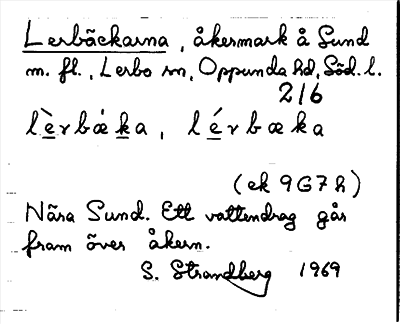 Lerbäckarna, åkermark å Sund
m. fl., Lerbo sn, Oppunda hd, Söd. l.
216
lèrbæ̀ka, lérbæka
(ek 9G7h)
Nära Sund. Ett vattendrag går
fram över åkern.
S. Strandberg 1969